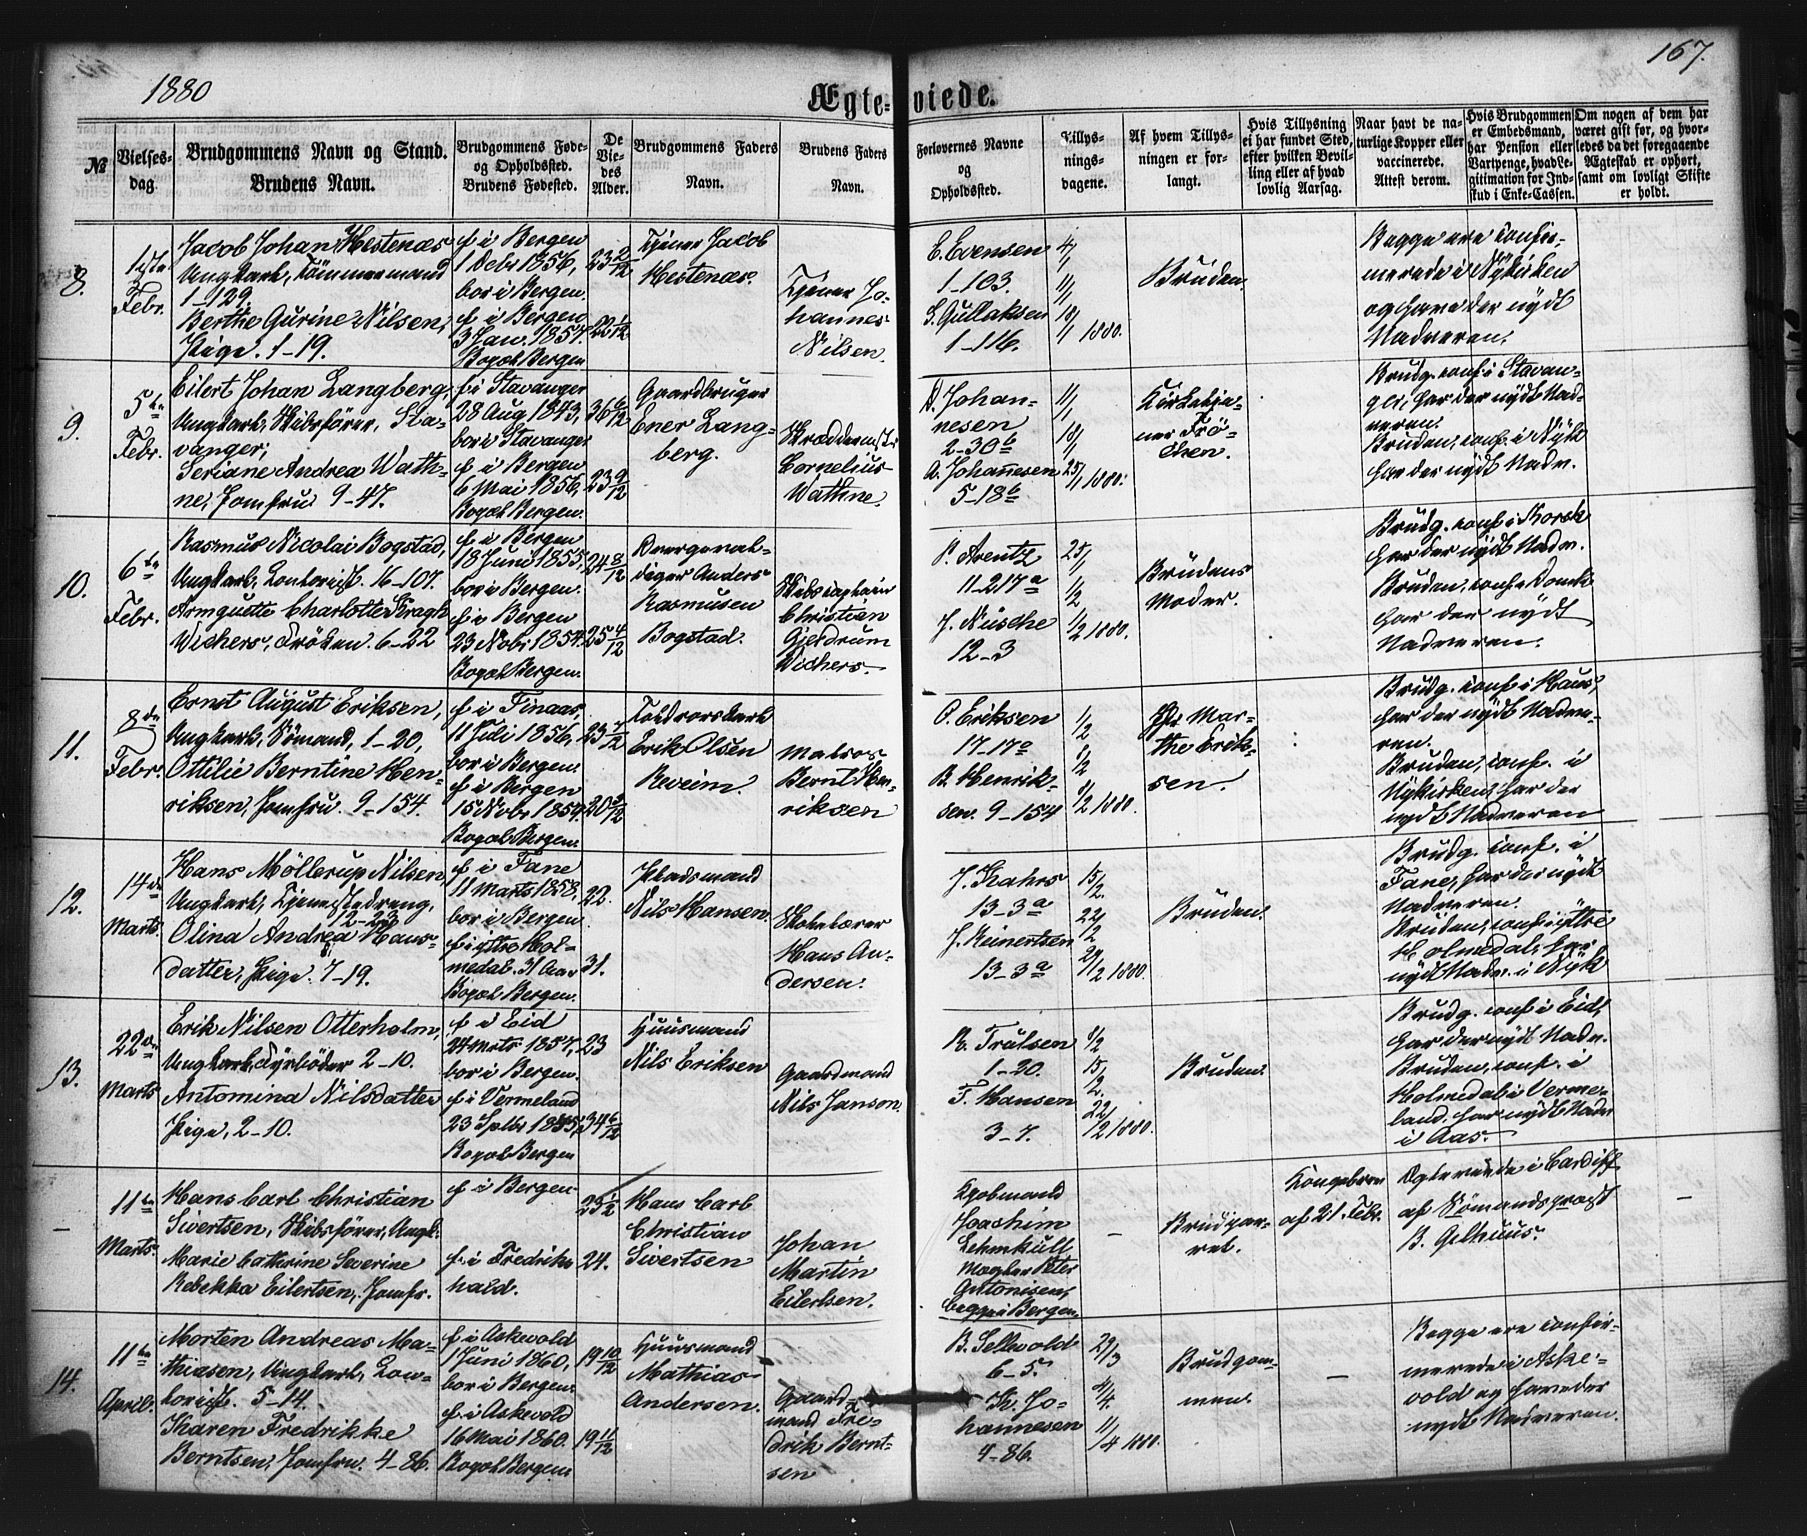 1880
Ægte-viede.
167.
№
Vielses-
dag.
Brudgommens Navn og Stand.
Brudens Navn.
Brudgommens Føde-
og Opholdssted.
Brudens Fødested.
De
Vie-
des
Alder.
Brudgommens Faders
Navn.
Brudens Faders
Navn.
Forlovernes Navne
og
Opholdssted.
Tillys-
nings-
dagene.
Af hvem Tillys-
ningen er for-
langt.
Hvis Tillysning
ei har fundet Sted,
efter hvilken Bevil-
ling eller af hvad
lovlig Aarsag.
Naar havt de na-
turlige Kopper eller
vaccinerede.
Attest derom.
Hvis Brudgommen
er Embedsmand,
har Pension eller
Vartpenge, hvad Le-
gitimation for Ind-
skud i Enke-Cassen.
Om nogen af dem har
været gift før, og hvor-
ledes da det foregaaende
Ægteskab er ophørt,
samt om lovligt Skifte
er holdt.
8.
1ste
Febr.
Jacob Johan Hestenæs
Ungkarl, Tömmermand
1-129.
Berthe Gurine Nilsen,
Pige. 1-19.
f i Bergen
1 Debr 1856,
bor i Bergen.
f i Bergen
3 Jan. 1857.
Bopæl Bergen
23 2/12
22 1/12
Tjener Jacob
Hestenæs.
Tjener Jo-
hannes
Nilsen.
E. Evensen
1-103.
S. Gullaksen
1-116.
4/1
11/1
18/1 1880.
Bruden
Begge ere confir-
merede i Nykirken
og have der nydt
Nadveren.
9.
5te
Febr.
Eilert Johan Langberg,
Ungkarl, Skibsfører, Sta-
vanger;
Seriane Andrea Wath-
ne, Jomfru 9-47.
f i Stavanger
28 Aug 1843,
bor i Stavanger
f i Bergen
6 Mai 1856,
Bopæl Bergen.
36 6/12
23 9/12
Gaardbruger
Ener Lang-
berg.
Skræddermstr
Cornelius
Wathne
A. Johan-
nesen
2-30b
A. Johannesen
5-18b
11/1
18/1
25/1 1880.
Kirketje-
ner Frö-
chen.
Brudg. conf i Stavan-
ger, har der nydt Nad-
veren.
Bruden, conf. i Nyk
har der nydt Nadv.
10.
6te
Febr.
Rasmus Nicolai Bogstad,
Ungkarl, Contorist. 16-107.
Armguette Charlotte Kragh
Wichers, Fröken. 6-22
f i Bergen
18 Juni 1855,
bor i Bergen.
f i Bergen
23 Novbr 1854.
Bopæl Bergen.
24 8/12
25 4/12
Anders
Rasmusen
Bogstad.
Skibscaptain
Christian
Gjerdrum
Wichers.
P. Arentz
11-217a
J. Nüsche
12-3
25/1
1/2
1/2 1880.
Brudens
Moder.
Brudg. conf i Korsk
har der nydt Nadv.
Bruden, conf i Domk
har der nydt
Nadveren.
11.
8de
Febr.
Ernst August Eriksen,
Ungkarl, Sømand, 1-20,
Ottilie Berntine Hen-
riksen, Jomfru. 9-154.
f i Finaas,
11 Juli 1856,
bor i Bergen.
f i Bergen
15 Novbr 1859
Bopæl Bergen.
23 7/12
20 2/12
Erik Olsen
Reveim.
Matros
Bernt Hen-
riksen
O. Eriksen
17-17a
B. Henrik-
sen. 9-154
1/2
6/2
8/2 1880.
Mar-
the Erik-
sen.
Brudg. conf i Haus,
har der nydt Nadve-
ren.
Bruden, conf. i
Nykirken, har der
nydt Nadveren
12.
14de
Marts.
Hans Möllerup Nilsen
Ungkarl, Tjenestedreng,
12-23
Olina Andrea Hans-
datter, Pige. 7-19.
f i Fane
11 Marts 1858,
bor i Bergen.
f i ytre Hol-
medal. 31 Aar
Bopæl Bergen.
22.
31.
Pladsmand
Nils Hansen
Skolelærer
Hans An-
dersen.
J. Krahrs
13-3a
J. Reinertsen
13-3a
15/2
22/2
29/2 1880.
Bruden.
Brudg. conf. i
Fane, har der nydt
Nadveren.
Bruden, conf i ytre
Holmedal, har
nydt Nadv. i Nyk
13.
22de
Marts
Erik Nilsen Otterholm,
Ungkarl, Fyrböder 2-10.
Antomina Nilsdatter
Pige, 2-10.
f i Eid
24 Mrts 1857,
bor i Bergen.
f i Vermeland
23 Sptbr 1845,
Bopæl Bergen
23
34 6/12
Huusmand
Nils Eriksen
Gaardmand
Nils Janson.
R. Trulsen
1-20.
F. Hansen
3-7.
8/2
15/2.
22/2 1880.
Bruden.
Brudg. conf i Eid,
har der nydt Nadv.
Bruden, conf. i
Holmedal i Verme-
land. har nydt Nadv
i Aas.
-
11te
Marts.
Hans Carl Christian
Sivertsen, Skibsfører, Ungk.
Marie Cathrine Severine
Rebekka Eilertsen, Jomfr.
f i Bergen
f. i Fredriks-
hald.
35 1/2
24.
Hans Carl
Christian
Sivertsen
Johan
Martin
Eilertsen.
Kjøbmand
Joachim
Lehmkull
Mægler Peter
Antonisen,
begge i Bergen.
-
Brudpar-
ret.
Kongebrev
af 21. Febr.
Ægteviede i Cardiff
af Sømandspræst
B. Gelhuus.
-
14.
11te
April.
Morten Andreas Ma-
thiasen, Ungkarl, Con-
torist. 5-14.
Karen Fredrikke
Berntsen, Jomfru. 4-86.
f i Askevold
1 Juni 1860,
bor i Bergen.
f i Askevold
16 Mai 1860.
Bopæl Bergen.
19 10/12
19 11/12
Huusmand
Mathias
Andersen.
Gaard-
mand Fre-
drik Bernt-
sen
B. Sellevold
6-5.
K. Jo-
hannesen
4-86.
29/3
4/4.
11/4 1880.
Brudgom-
men.
-
Begge ere confir-
merede i Aske-
vold og have der
nydt Nadveren.